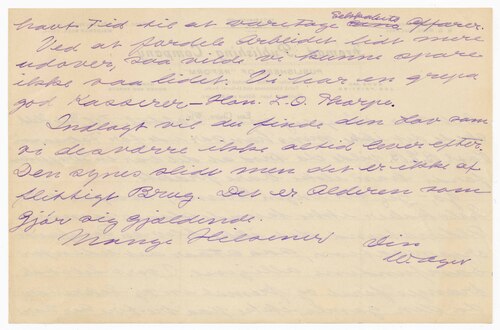 havt Tid til at varetage Selskabets Affærer.
Ved at fordele Arbeidet lidt mere
udover, saa vilde vi kunne spare
ikke saa lidet. Vi har en grepa
god Kasserer – Hon. L. O. Thorpe.
Indlagt vil du finde den Lov som
vi desværre ikke altid lever efter.
Den synes slidt men det er ikke af
flittigt Brug. Det er Alderen som
gjør sig gjældende.
Mange Hilsener Din
W. Ager